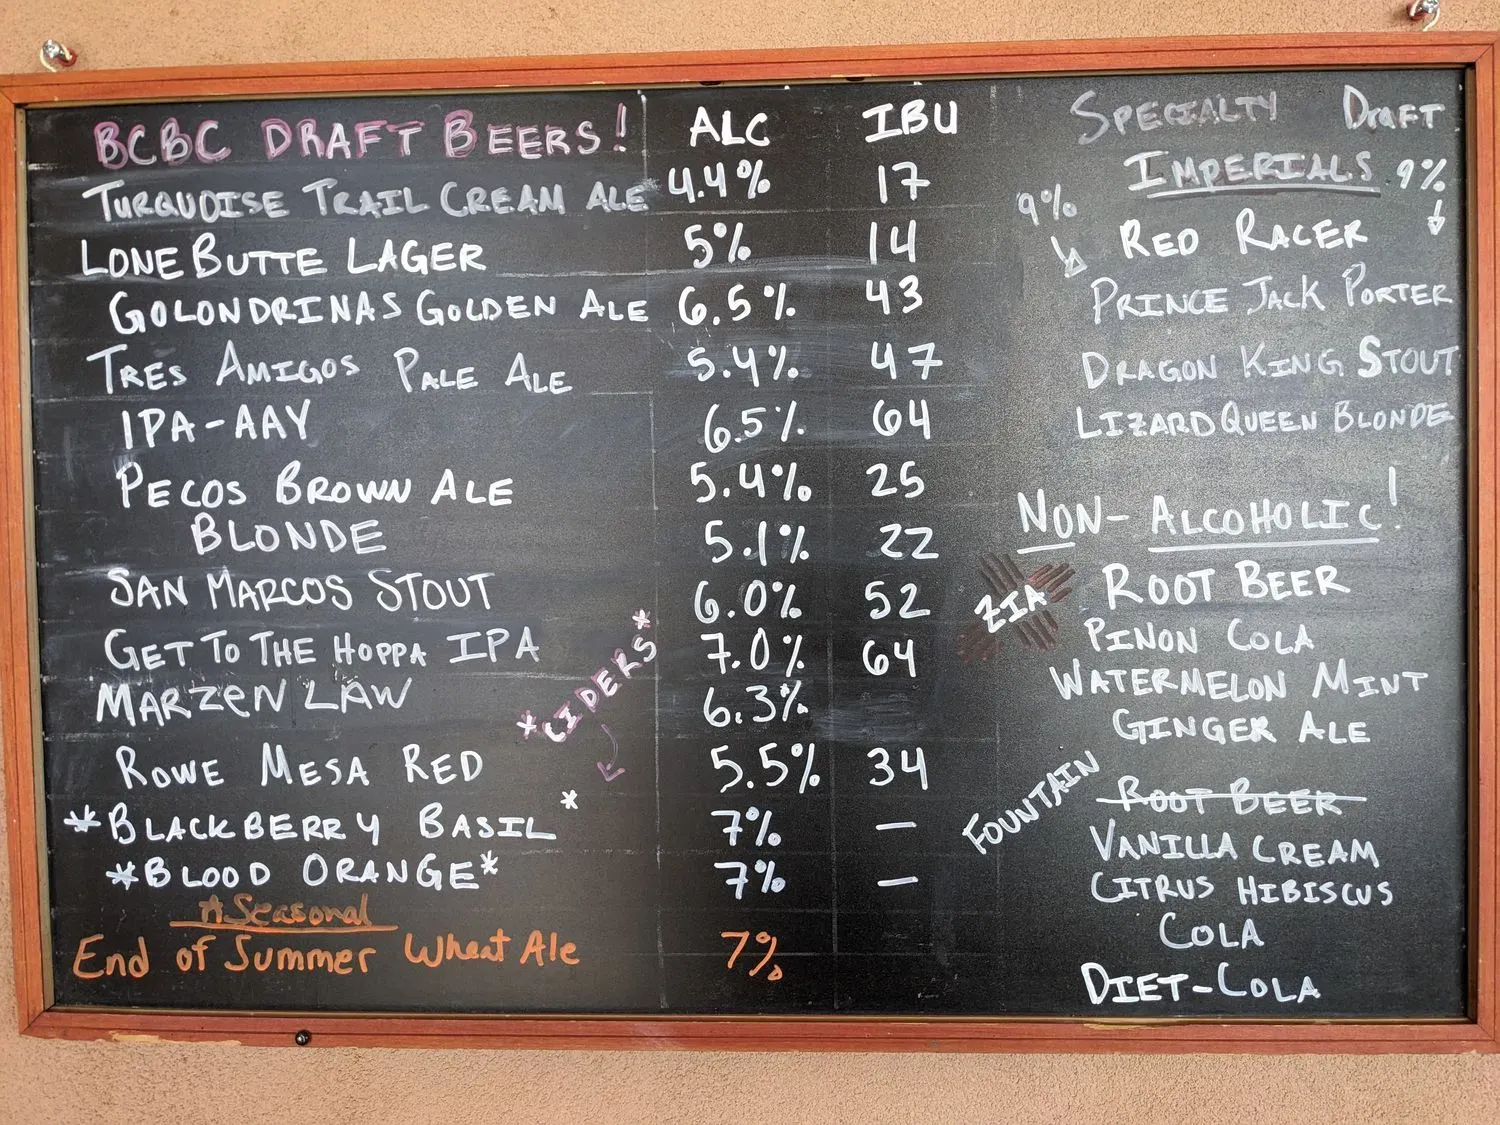 BCBC DRAFT BEERS! ALC IBU
TURQUOISE TRAIL CREAM ALE 4.4% 17
LONE BUTTE LAGER 5% 14
GOLONDRINAS GOLDEN ALE 6.5% 43
TRES AMIGOS PALE ALE 5.4% 47
IPA-AAY 6.5% 64
PECOS BROWN ALE 5.4% 25
BLONDE 5.1% 22
SAN MARCOS STOUT 6.0% 52
GET TO THE HOPPA IPA 7.0% 64
MARZEN LAW 6.3%
ROWE MESA RED 5.5% 34
*CIDERS*
*BLACKBERRY BASIL* 7% —
*BLOOD ORANGE* 7% —
*Seasonal
End of Summer Wheat Ale 7%
SPECIALTY DRAFT
IMPERIALS 9%
9%
RED RACER
PRINCE JACK PORTER
DRAGON KING STOUT
LIZARD QUEEN BLONDE
NON-ALCOHOLIC!
ZIA
ROOT BEER
PINON COLA
WATERMELON MINT
GINGER ALE
FOUNTAIN
ROOT BEER
VANILLA CREAM
CITRUS HIBISCUS
COLA
DIET-COLA